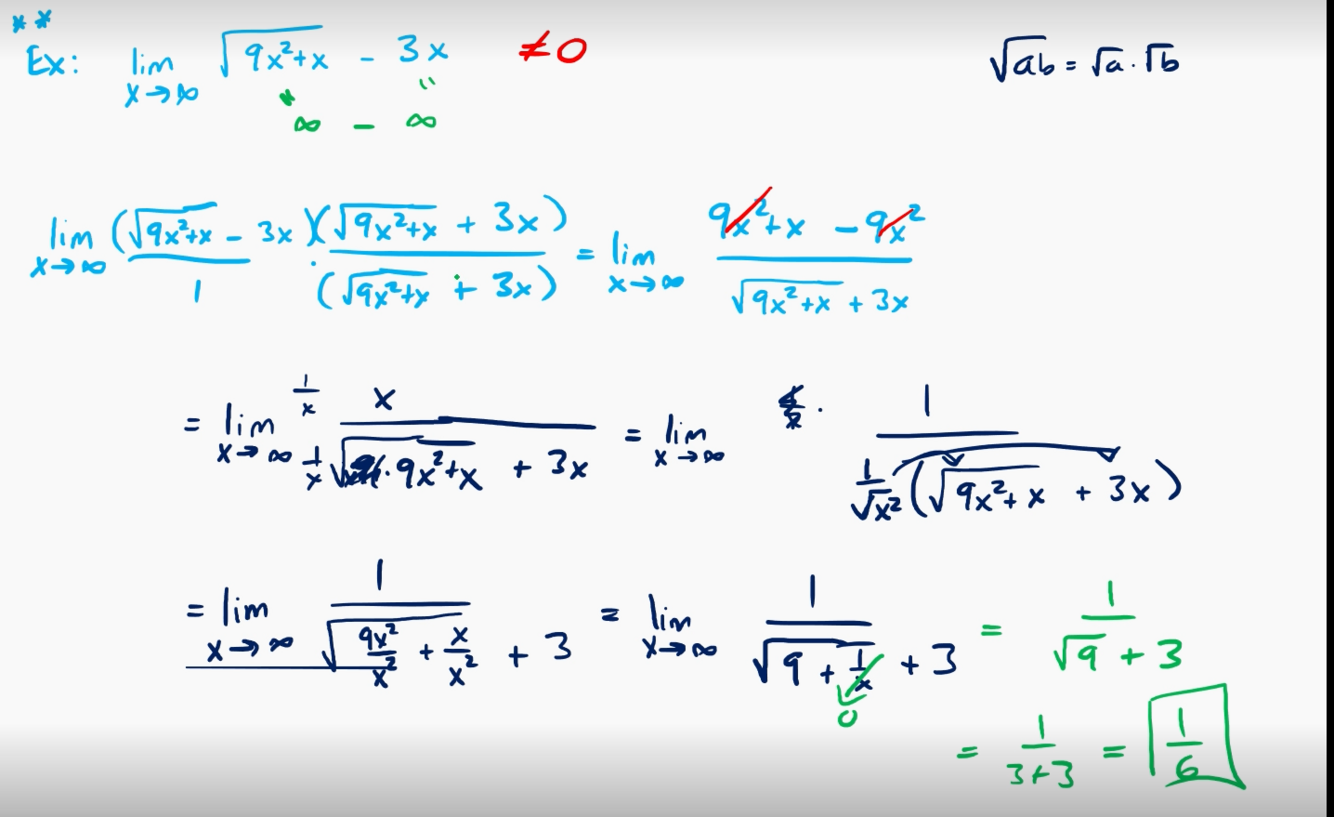 **
Ex: lim x→∞ √(9x²+x) - 3x ≠0 √ab = √a · √b
∞ - ∞
lim x→∞ (√(9x²+x) - 3x)/1 · (√(9x²+x) + 3x)/(√(9x²+x) + 3x) = lim x→∞ (9x²+x - 9x²)/(√(9x²+x) + 3x)
= lim x→∞ (1/x x)/(1/x √(9x²+x) + 3x) = lim x→∞ 1/(1/√x² (√(9x²+x) + 3x))
= lim x→∞ 1/(√(9x²/x² + x/x²) + 3) = lim x→∞ 1/(√(9 + 1/x) + 3) = 1/(√9 + 3)
0
= 1/(3+3) = 1/6